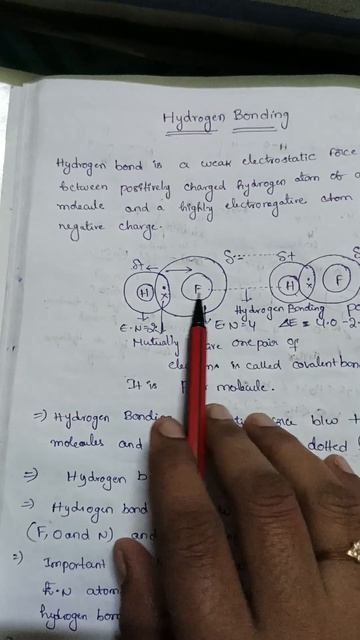 Hydrogen Bonding
Hydrogen bond is a weak electrostatic force
between positively charged hydrogen atom of a
molecule and a highly electronegative atom
negative charge.
δ+ δ- δ+ δ
H F H F
Hydrogen Bonding
E.N=2.1 E.N=4 ΔE = 4.0-2.
Mutually one pair of
is called covalent bond
It is molecule.
⇒) Hydrogen Bonding b/w
molecules and dotted
⇒) Hydrogen
⇒) Hydrogen bond
(F, O and N) and
⇒) Important
E.N atom
hydrogen bond